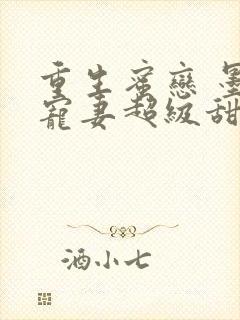 重生蜜戀 墨
寵妻超級甜
酒小七